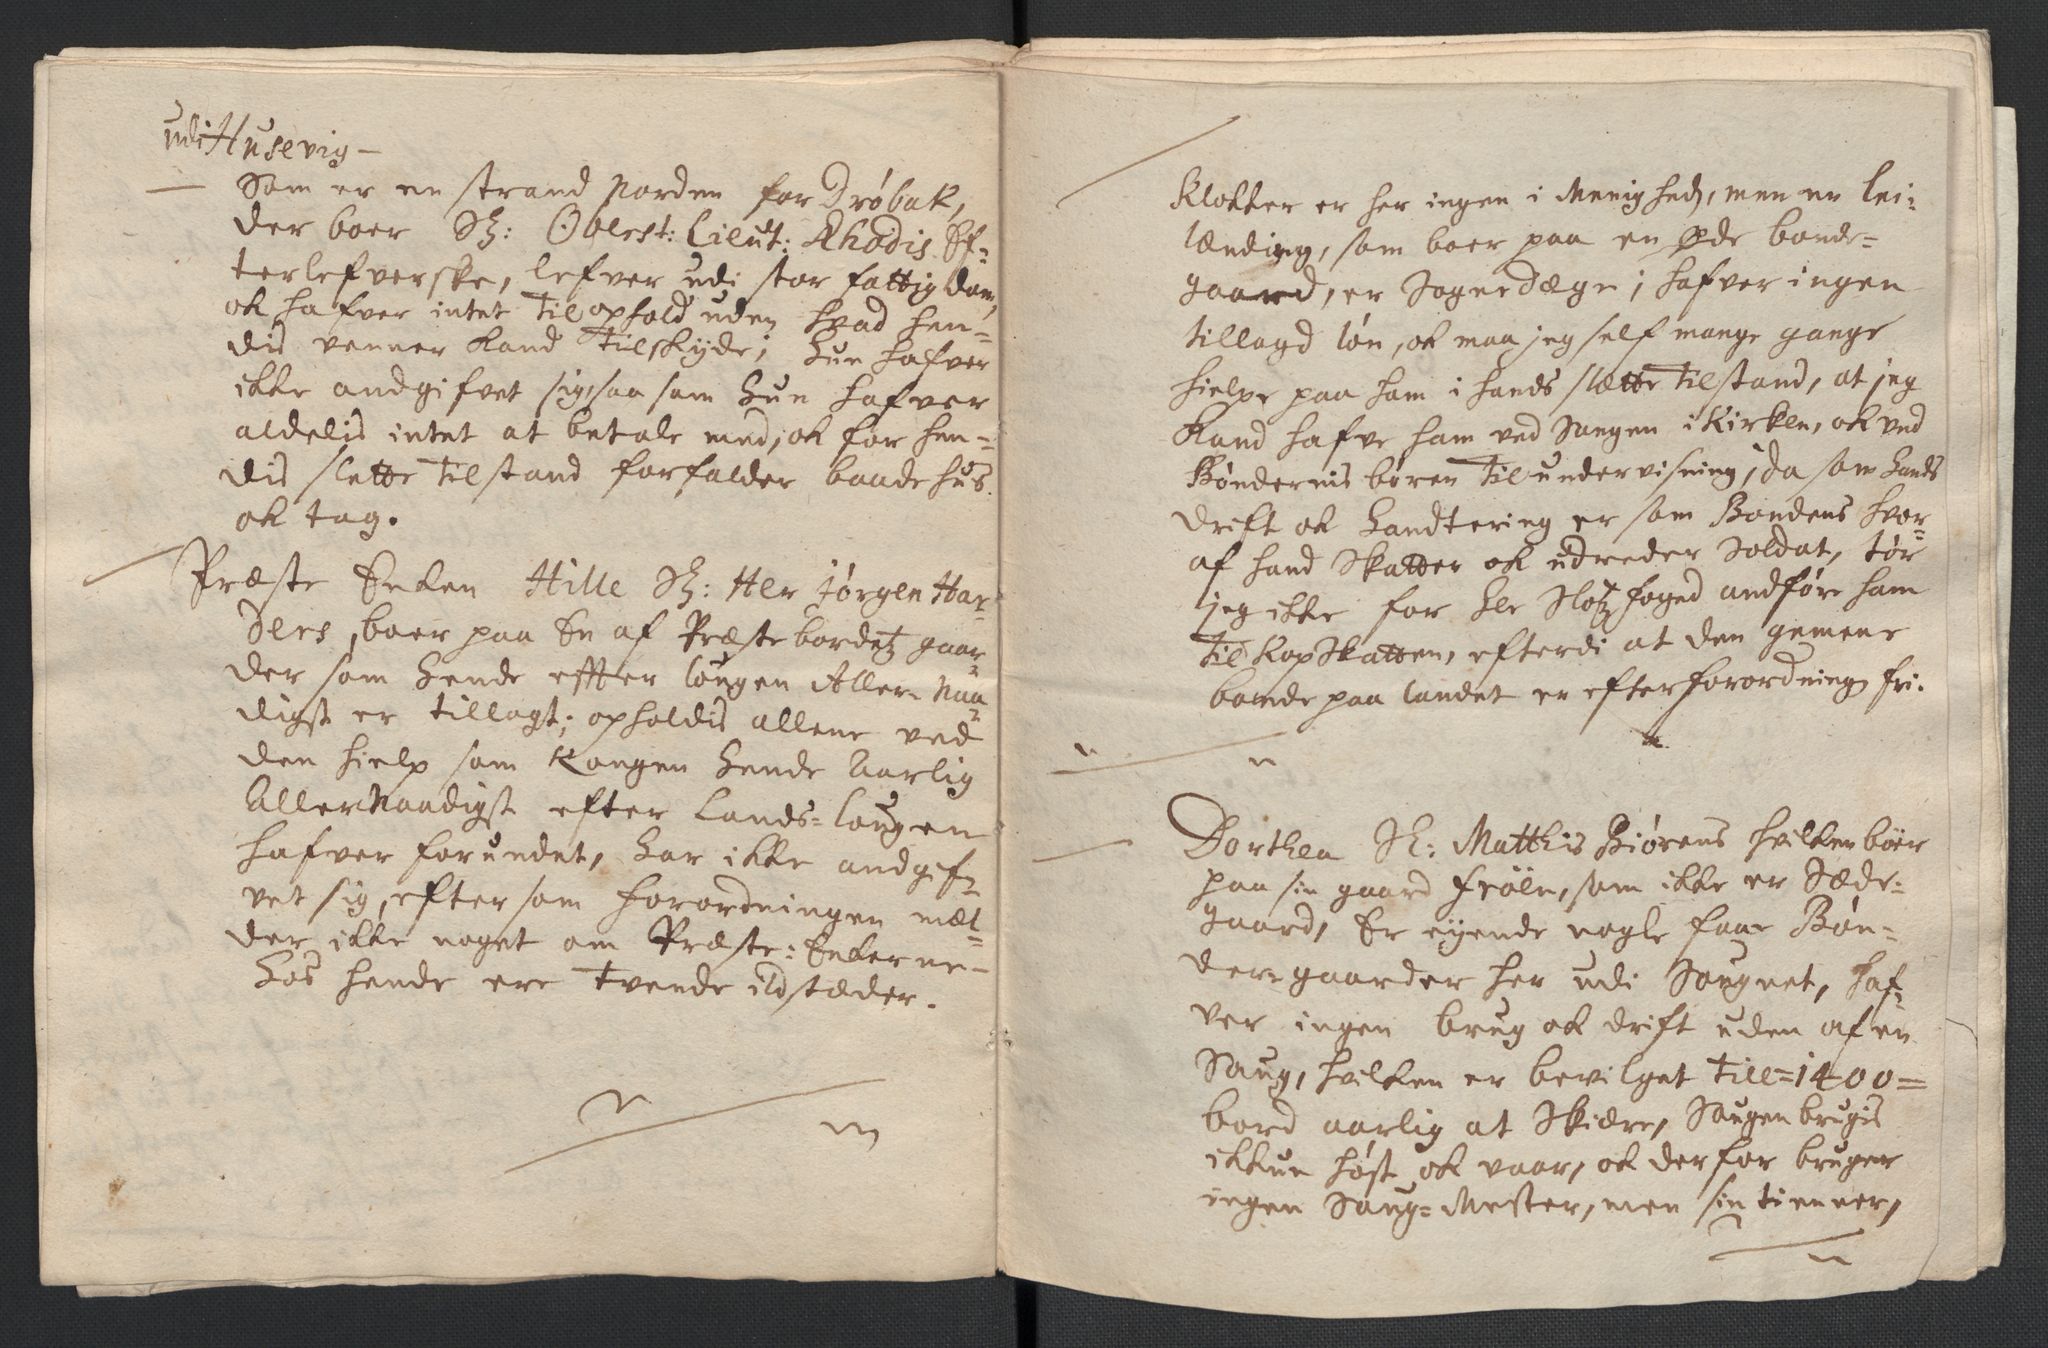 udi Husevig –
Som er en strand Norden for Drøbak,
der boer Sl: Oberst: Lieut: Rhodis Ef-
terlefverske, lefver udi stor fattigdom,
ok hafver intet til ophold uden hvad hen-
dis venner kand tilskyde; hun hafver
ikke andgifvet sig, saa som hun hafver
aldelis intet at betale med, ok for hen-
dis slette tilstand forfalder baade hus
ok tag.
Præste Enken Hille Sl: Her Jørgen Har-
ders, boer paa En af Præstebordetz gaar-
der som hende effter lougen Aller-Naa-
digst er tillagt; opholdis allene ved
den hielp som Kongen hende Aarlig
AllerNaadigst efter Lands-lougen
hafver forundet, har ikke andgif-
vet sig, eftersom forordningen mel-
der ikke noget om Præste-Enkerne –
hos hende ere tvende ildstæder.
Klokker er her ingen i Menighed, men en lei-
lænding, som boer paa en øde bonde-
gaard, er Sognedægn; hafver ingen
tillagd løn, ok maa jeg self mange gange
hielpe paa ham i hands slætte tilstand, at jeg
kand hafve ham ved Sangen i Kirken, ok ved
Bøndernis børen til undervisning; da som hands
drift ok handtering er som Bondens hvor-
af hand Skatter ok udreder Soldat, tør
jeg ikke for her Slotzfoged andføre ham
til KopSkatten, efterdi at den gemene
bonde paa landet er efter forordning fri.
Dorthea Sl: Matthis Biørens hvilken boer
paa sin gaard Frøen, som ikke er Sæde-
gaard, Er eyende nogle faae Bøn-
der-gaarder her udi Sougnet, haf-
ver ingen brug ok drift uden af en
Saug, hvilken er bevilget till = 1400 =
bord aarlig at Skiære, Saugen brugis
ikkun høst ok vaar, ok derfor bruger
ingen Saug-Mester, men sin tienner,